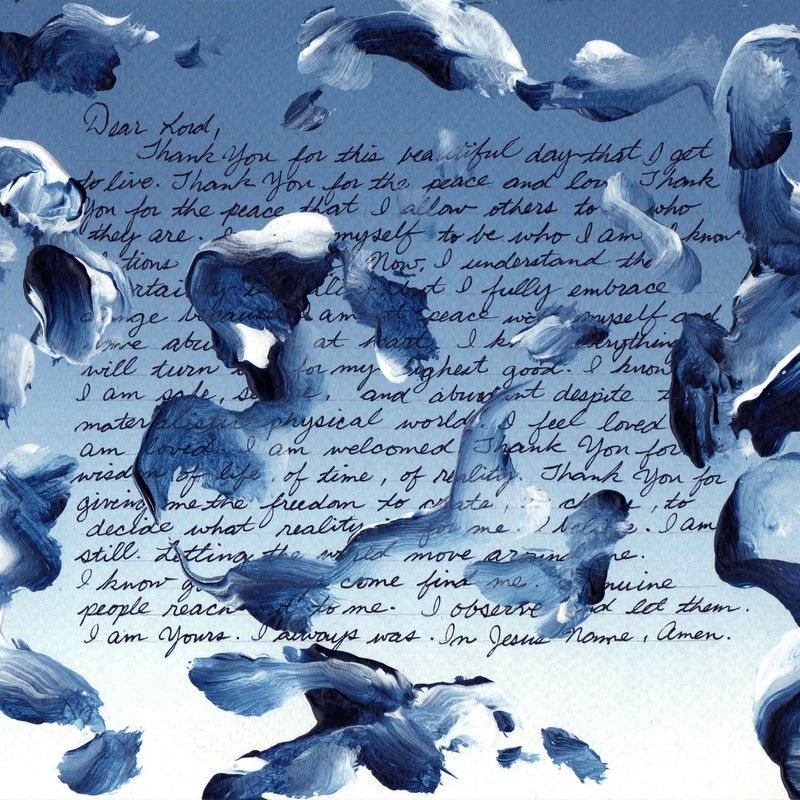 Dear Lord,
Thank You for this beautiful day that I get
to live. Thank You for the peace and Thank
You for the peace that I allow others to who
they are. I myself to be who I am I know
Now, I understand the
but I fully embrace
because I am at peace myself and
at heart. I everything
will turn for my highest good. I know
I am safe, and abundant despite
materialistic physical world. I feel loved
am loved. I am welcomed Thank You for
wisdom of life, of time, of reality. Thank You for
giving me the freedom to to
decide what reality for me. I believe. I am
still. Letting the world move around me.
I know come find me. Genuine
people reach out to me. I observe and let them.
I am Yours. I always was. In Jesus Name, Amen.